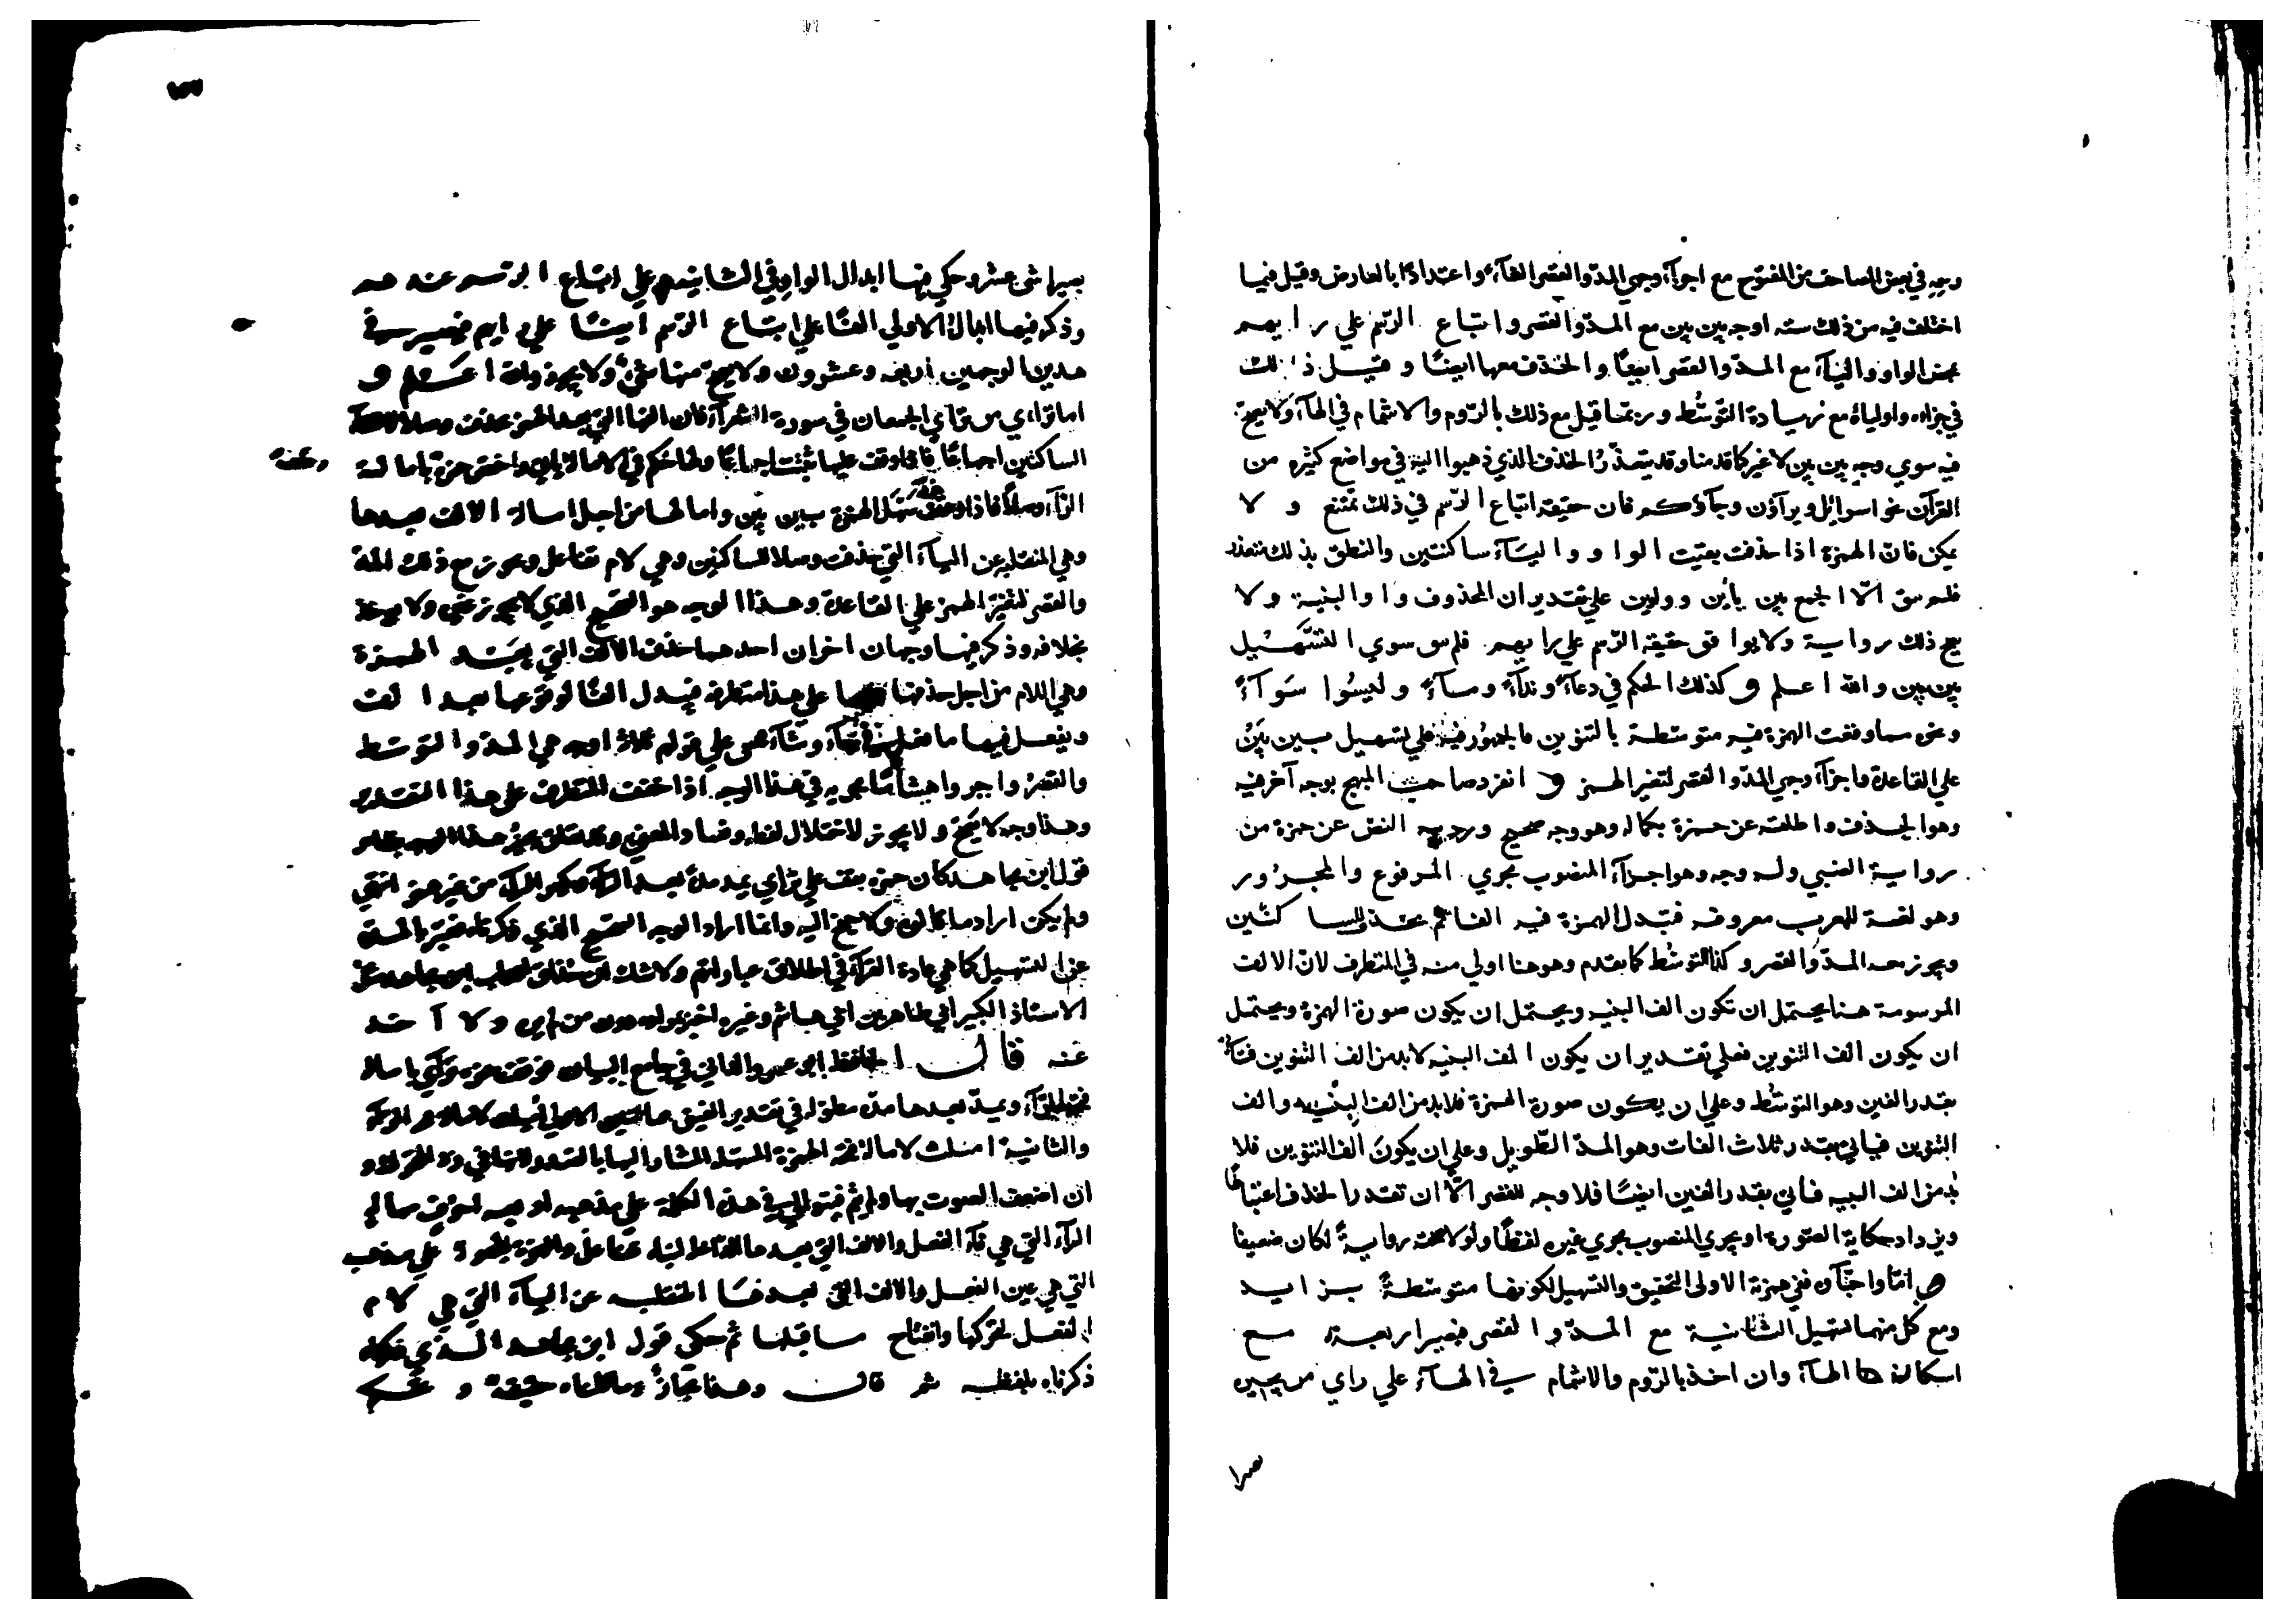 وغيره في بعض المصاحف من المفتوح مع اجرآء وجهي المدّ والقصر الغآء واعتدادًا بالعارض وقيل فيما
اختلف فيه من ذلك ستة اوجه بين بين مع المدّ والقصر واتباع الرسم علي رايهم
بمحض الواو واليآء مع المدّ والقصر ايضًا والحذف معهما ايضًا وقيل ذلك
في جزاؤه واولياؤه مع زيادة التوسّط وربّما قيل مع ذلك بالرّوم والاشمام في الهآء ولا يصح
فيه سوي وجه بين بين لا غير كما قدمنا وقد يتعذّر الحذف الذي ذهبوا اليه في مواضع كثيرة من
القرآن نحو اسرائيل ويرآؤن وجآؤكم فان حقيقة اتباع الرّسم في ذلك تمتنع ولا
يمكن فان الهمزة اذا حذفت بقيت الواو واليآء ساكنتين والنطق بذلك متعذر
فلم يبق الّا الجمع بين يائين وواوين علي تقدير ان المحذوف واو البنية ولا
يصح ذلك رواية ولا يوافق حقيقة الرّسم علي رايهم فلم يبق سوي التسهيل
بين بين والله اعلم و كذلك الحكم في دعآءً وندآءً ومآءً وليسُوا سَوآءً
ونحوه مما وقعت الهمزة فيه متوسطة بالتنوين فالجمهور فيه علي تسهيل بين بين
علي القاعدة واجرآء وجهي المدّ والقصر لتغير الهمز و انفرد صاحب المبهج بوجه آخر فيه
وهو الحذف واطلقه عن حمزة بكماله وهو وجه صحيح ورد به النص عن حمزة من
رواية الضبي وله وجه وهو اجرآء المنصوب مجري المرفوع والمجرور
وهو لغة للعرب معروفة فتبدل الهمزة فيه الفا ثم تحذف للساكنين
ويجوز معه المدّ والقصر وكذا التوسّط كما تقدم وهو هنا اولي منه في المتطرف لان الالف
المرسومة هنا يحتمل ان تكون الف البنية ويحتمل ان يكون صورة الهمزة ويحتمل
ان يكون الف التنوين فعلي تقدير ان يكون الف البنية لا بد من الف التنوين فتاتي
بقدر الفين وهو التوسّط وعلي ان يكون صورة الهمزة فلا بد من الف البنية والف
التنوين فياتي بقدر ثلاث الفات وهو المدّ الطّويل وعلي ان يكون الف التنوين فلا
بُدّ من الف البنية فياتي بقدر الفين ايضًا فلا وجه للقصر الّا ان تقدر الحذف اعتباطًا
ويزداد حكاية الصّورة او يجري المنصوب مجري غيره لفظًا ولولا صحته روايةً لكان ضعيفا
و امّا واحبّآؤه ففي همزته الاولى التحقيق والتسهيل لكونها متوسطةً بزايد
ومع كل منهما تسهيل الثانية مع المدّ والقصر فيصير اربعة مع
اسكان ها الهآء وان اخذ بالرّوم والاشمام في الهآء علي راي من يجيزه
يصير اثنى عشر وحكي فيها ابدال الواو في الثانية علي اتباع الرسم عندهم
وذكر فيها ابدال الاولي الفًا علي اتباع الرّسم ايضًا علي رايهم فيصير في
هذين الوجهين اربعة وعشرون ولا يصح منها شيٌ ولا يجوز والله اعلم و
اما تراءي من ترآي الجمعان في سورة الشعرآء فان الفها التي بعد الهمزة حذفت وصلا
الساكنين اجماعًا فاذا وقف عليها ثبتت اجماعًا ولها حكم في الامالة ياتي واختص حمزة بامالة
الرّآء وصلًا فاذا وقف حمزة سهّل الهمزة بين بين وامالها من اجل امالة الالف بعدها
وهي المنقلبة عن اليآء التي حذفت وصلا للساكنين وهي لام تفاعل ويجوز مع ذلك المدّ
والقصر لتغيّر الهمز علي القاعدة وهذا الوجه هو الصحيح الذي لا يجوز غيره ولا يوخذ
بخلافه وذكر فيها وجهان اخران احدهما حذف الالف التي بعد الهمزة
وهي اللام من اجل حذفها علي هذا متطرفة فتبدل الفًا لوقوعها بعد الف
ويفعل فيها ما يفعل في جآء وشآء علي قولهم ثلاثة اوجه هي المدّ والتوسّط
والقصر واجروا هشامًا مجريه في هذا الوجه اذا خفف المتطرف علي هذا التقدير
وهذا وجه لا يصح ولا يجوز لاختلال لفظه وفساد المعني وقد تعلق مجيز هذا الوجه بظاهر
قول ابن مجاهد كان حمزة يقف علي ترآي يمد مدة بعد الرآء ويكسر الرآء من غير همز انتهي
ولم يكن اراد ما قالوه ولا جنح اليه وانما اراد الوجه الصحيح الذي ذكرناه فعبّر بالمدّة
عن التسهيل كما هي عادة القرآء في اطلاق عباراتهم ولا شك
الاستاذ الكبير ابي طاهر بن ابي هاشم وغيره
عنه قال الحافظ ابو عمرو الداني في جامع البيان فوقف حمزة ترآي بامالة
فتحة الرآء ويمدّ بعدها مدّة مطوّلة في تقدير الفين
والثانية اميلت لامالة فتحة الهمزة المسهّلة المشار اليها بالصدر
ان اضعف الصوت بها ولم يتم فيتوالي في هذه الكلمة علي مذهبه اربعة احرف ممالة
الرآء التي هي فآء الفعل والالف التي بعدها الداخلة لبنآء تفاعل والهمزة المجعولة علي مذهبه
التي هي عين الفعل والالف التي بعدها المنقلبة عن اليآء التي هي لام
الفعل لتحركها وانفتاح ما قبلها ثم حكي قول ابن مجاهد الذي
ذكرناه بلفظه ثم قال وهذا مجاز وما قلناه حقيقة
يصيرا